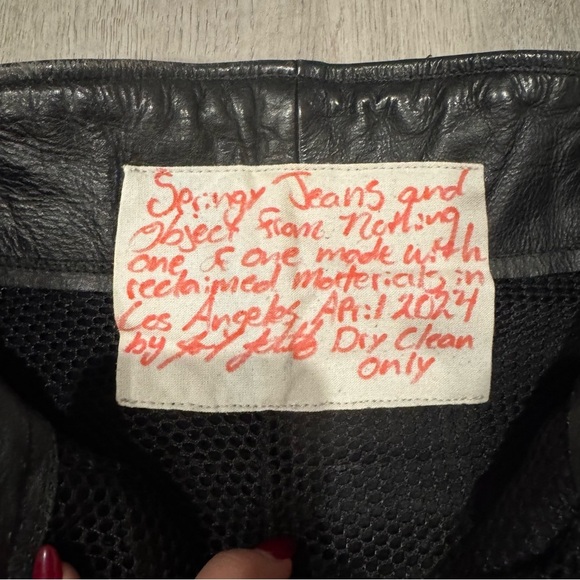 Springy Jeans and
Object From Nothing
one of one made with
reclaimed materials in
Los Angeles April 2024
by Dry Clean
only